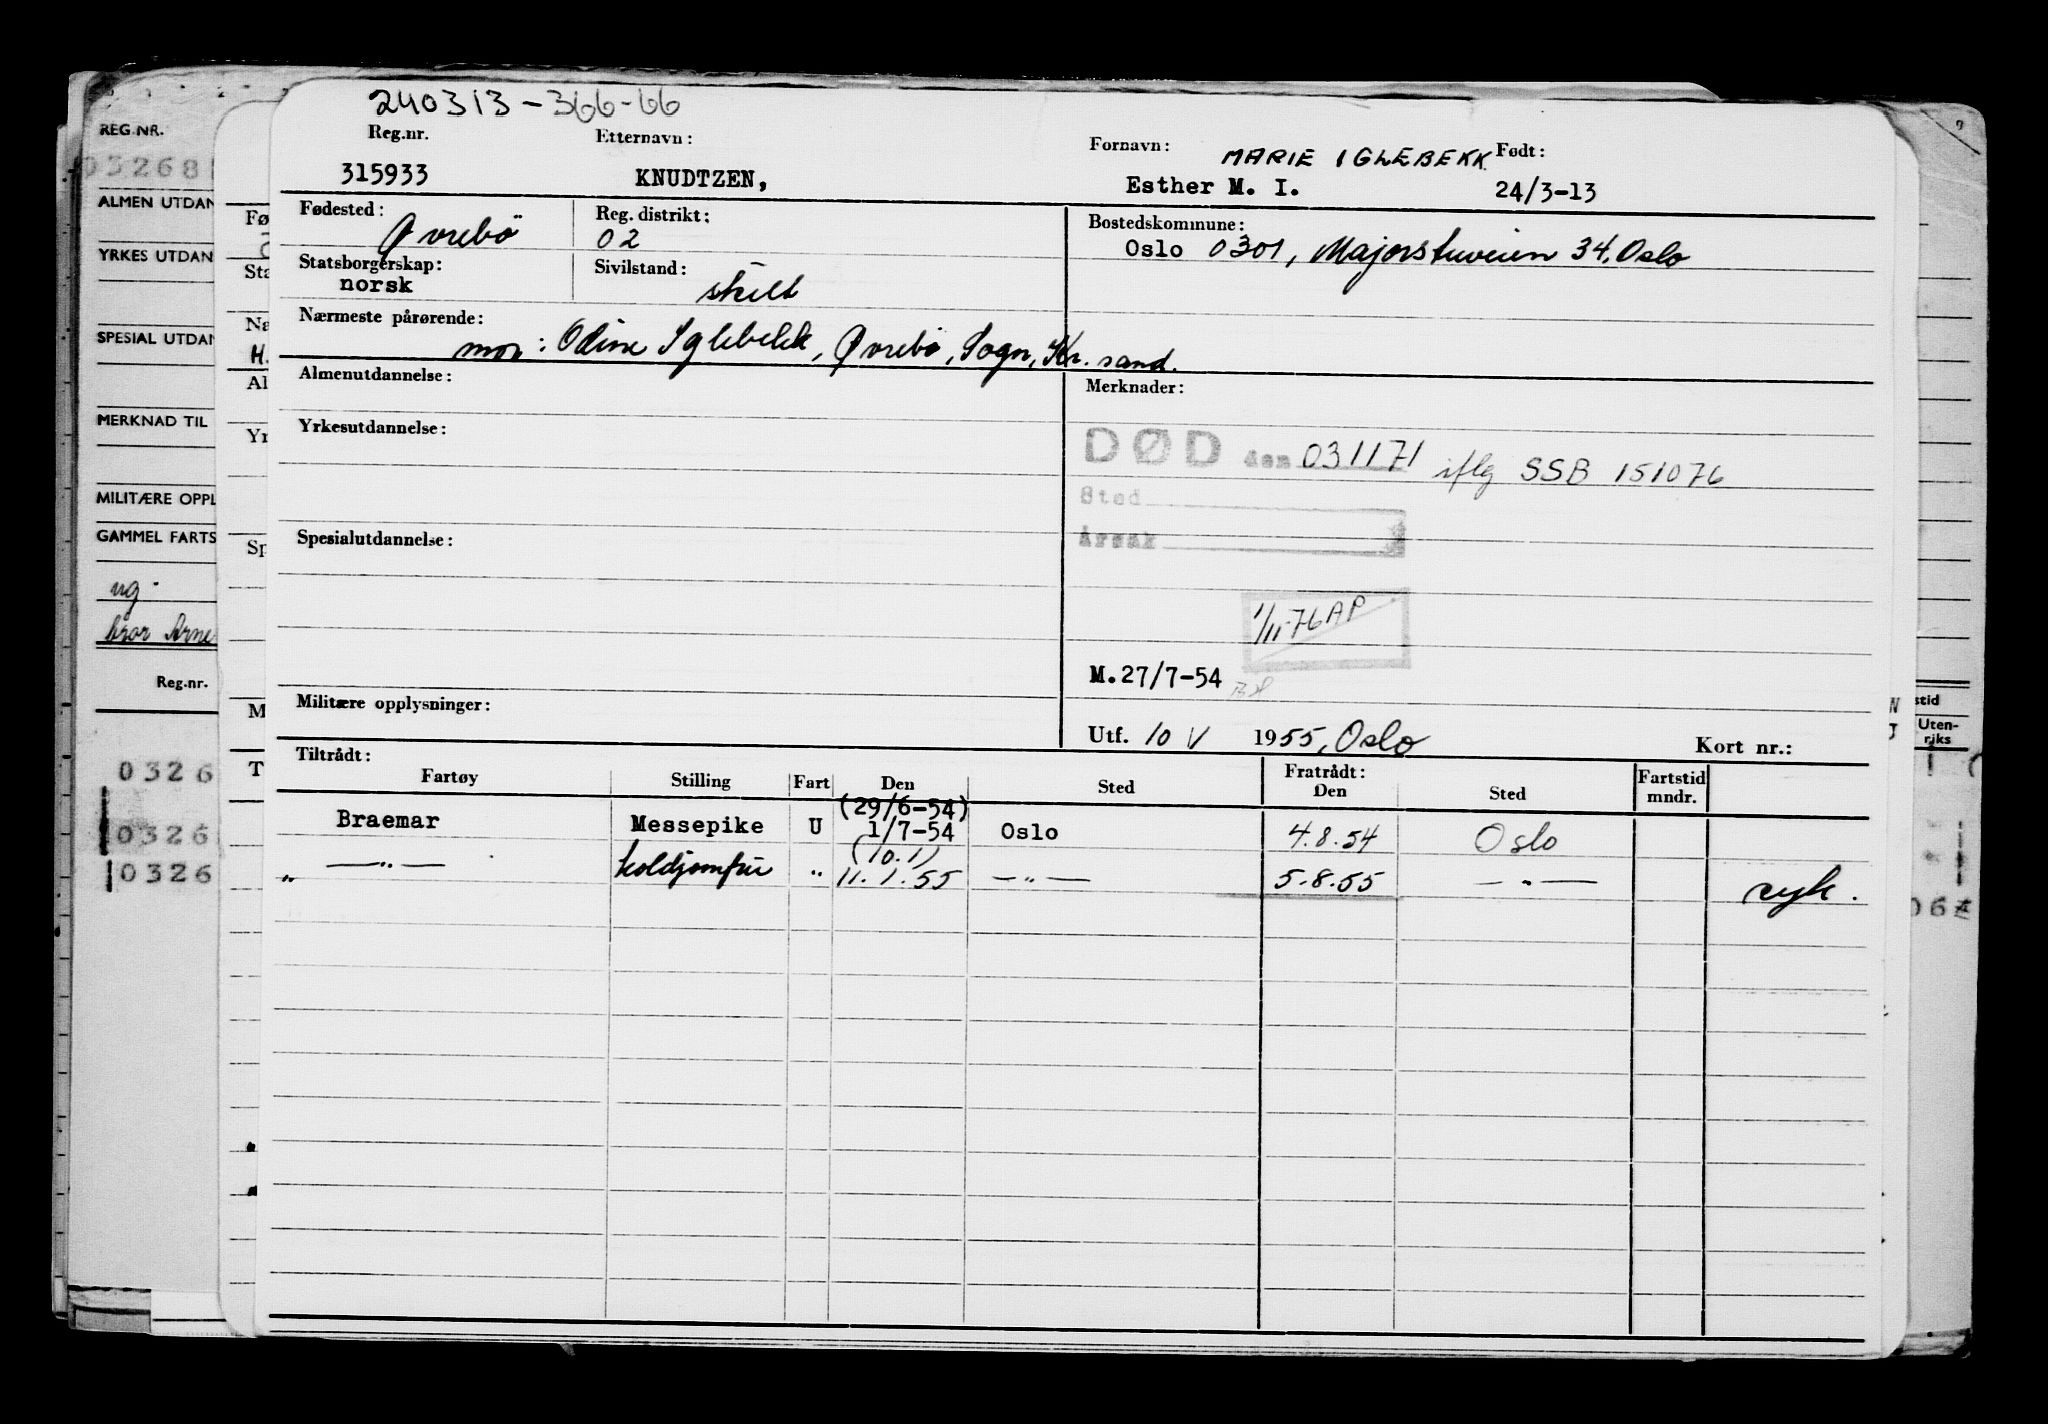 240313-366-66
Reg.nr. Etternavn: Fornavn: MARIE IGLEBEKK. Født:
315933 KNUDTZEN, Esther M. I. 24/3-13
Fødested: Øvrebö Reg. distrikt: 02 Bostedskommune:
Oslo 0301, Majorstuveien 34, Oslo
Statsborgerskap: norsk Sivilstand: skilt
Nærmeste pårørende:
mor: Odine Iglebekk, Øvrebö, Sogn, Kr. sand.
Almenutdannelse: Merknader:
Yrkesutdannelse:
DØD den 031171 iflg SSB 151076
Sted
Spesialutdannelse: Årsak
1/11-76 AP
M.27/7-54
Militære opplysninger:
Utf. 10 V 1955, Oslo Kort nr.:
Tiltrådt: Fratrådt: Fartstid
Fartøy Stilling Fart Den Sted Den Sted mndr.
(29/6-54)
Braemar Messepike U 1/7-54 Oslo 4.8.54 Oslo
(10.1)
" —"— koldjomfru " 11.1.55 —"— 5.8.55 —"— syk.
REG.NR.
03268
ALMEN UTDAN
YRKES UTDAN
SPESIAL UTDAN
MERKNAD TIL
MILITÆRE OPPL
GAMMEL FARTS
ug.
bror Arne
Reg.nr.
0326
0326
0326
Fø
Sta
Na
H.
Al
Yr
Sp
M
T
stid
Uten-
riks
06